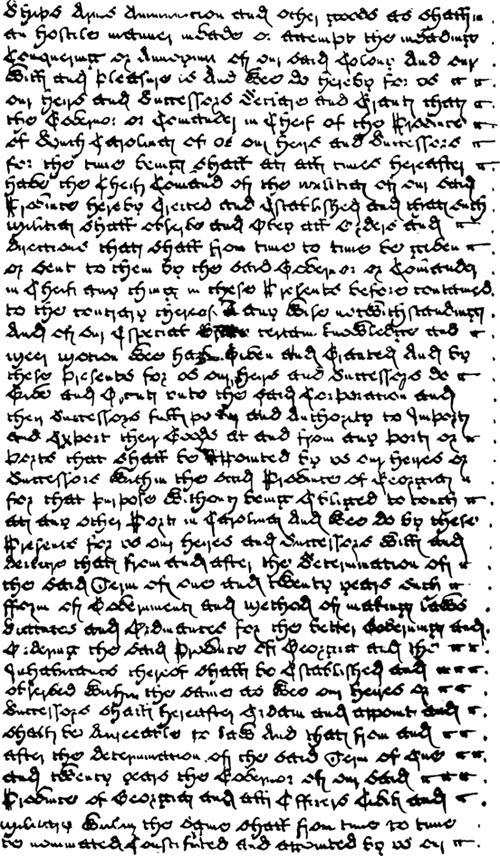 Ships Arms Ammunition and other goods as shall in
an hostile manner invade or attempt the invading
Conquering or Annoying of our said Colony And our
Will and Pleasure is And Wee do hereby for us
our heirs and Successors Declare and Grant that
the Governor or Comander in Cheif of the Province
of South Carolina of us our heirs and Successors
for the time being shall at all times hereafter
have the Cheif Comand of the militia of our said
Province hereby Erected and Established and that such
militia shall observe and Obey all Orders and
directions that shall from time to time be given
or sent to them by the said Governor or Comander
in Cheif any thing in these Presents before contained
to the contrary thereof in any wise notwithstanding
And of our Especial certain knowledge and
meer motion Wee have Given and Granted And by
these presents for us our heirs and Successors do
Give and Grant unto the said Corporation and
their Successors full power and Authority to Import
and Export their Goods at and from any port or
ports that shall be appointed by us our heires or
Successors within the said Province of Georgia
for that purpose Without being Obliged to touch
at any other Port in Carolina And Wee do by these
Presents for us our heires and Successors Will and
declare that from and after the Determination of
the said Term of one and twenty years such
fform of Government and Method of making Laws
Statutes and Ordinances for the better Governing and
Ordering the said Province of Georgia and the
Inhabitants thereof shall be Established and
observed within the same as Wee our heires or
Successors shall hereafter Ordain and appoint and
shall be Agreeable to Law And that from and
after the determination of the said Term of One
and twenty years the Governor of our said
Province of Georgia and all Officers Civil and
military within the same shall from time to time
be nominated Constituted and appointed by us our